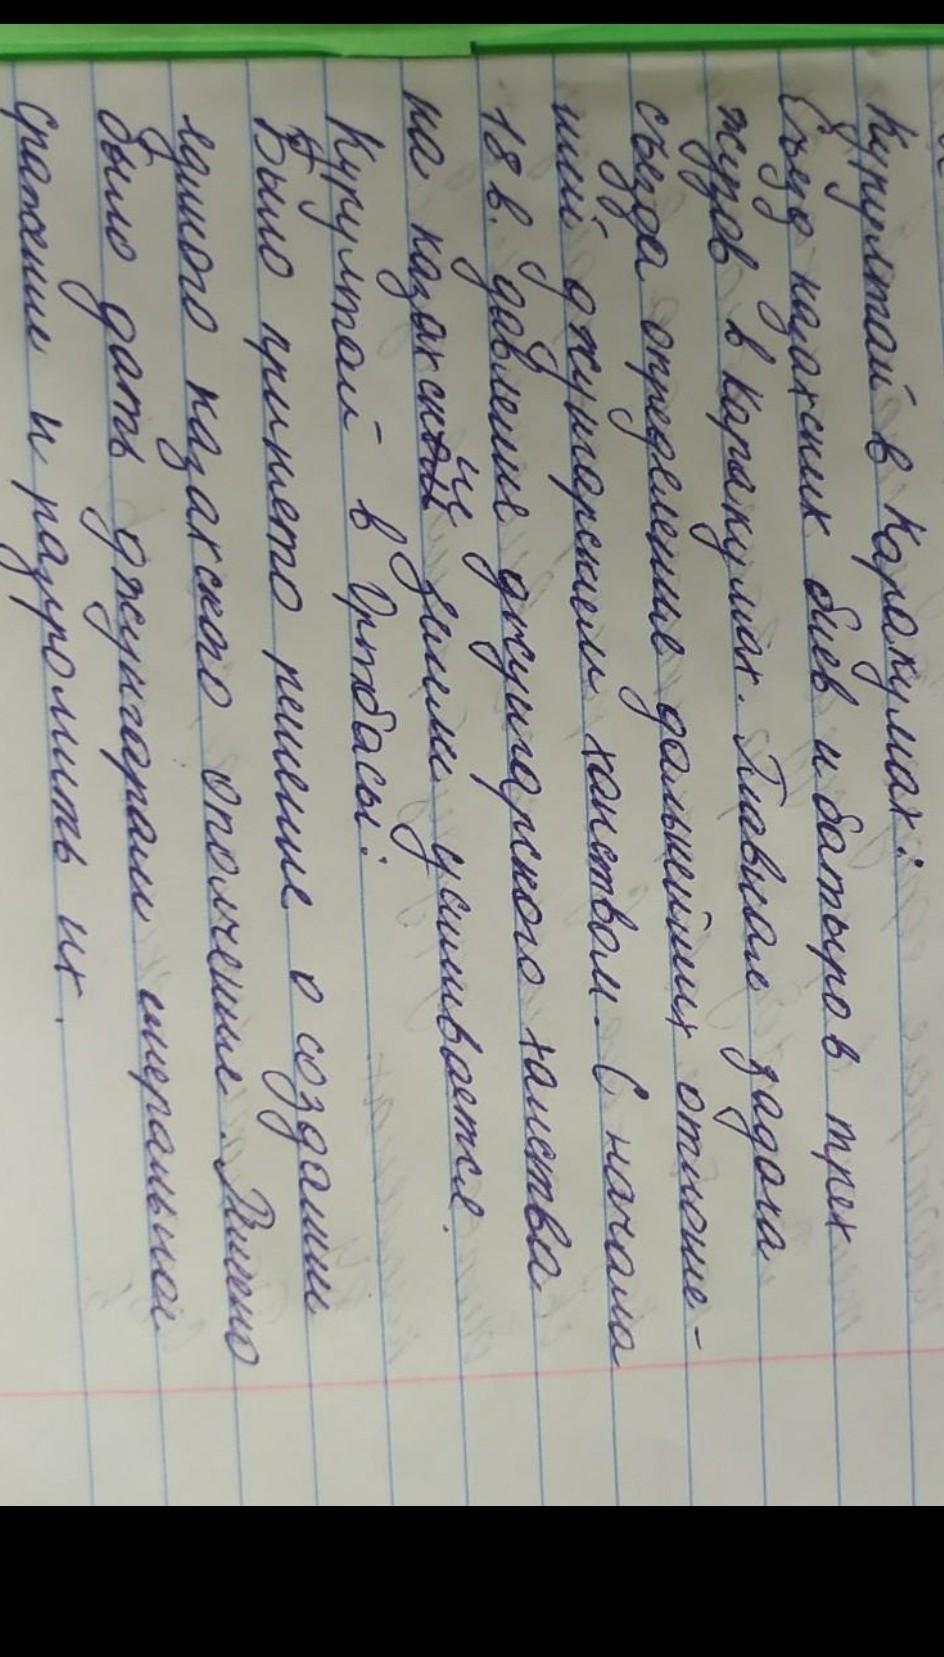 Курултай в Каракумах:
Съезд казахских биев и батыров трех
жузов в Каракумах. Главная задача
съезда определение дальнейших отноше-
ний джунгарским ханством. С начала
18 в. давление джунгарского ханства
на казахские земли усиливается.
Курултай в Ортбасы:
Было принято решение о создании
единого казахского ополчения. Решено
было дать джунгарам генеральное
сражение и разгромить их.